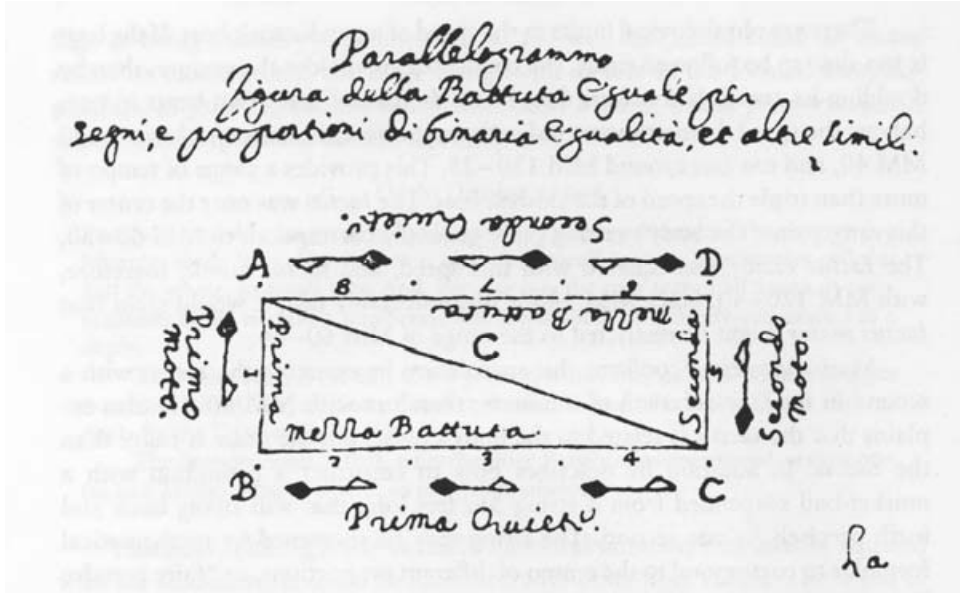 Parallelogrammo
figura della Battuta Eguale pir
segni, e proportioni di binaria Egualità, et altre simili.
Seconda Quiete.
A D
8 7 6
mezza Battuta
Primo moto
1
C
5
Secondo moto
mezza Battuta.
2 3 4
B C
Prima Quiete.
La